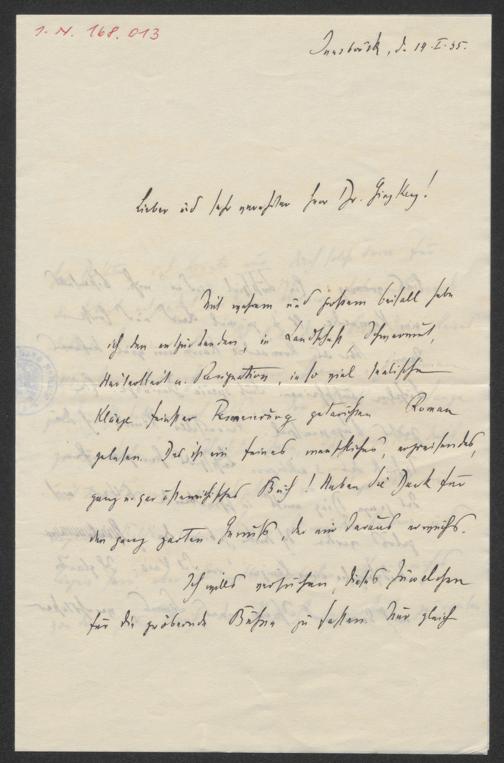 I. N. 168.013
Innsbruck, d. 19.I.35.
Lieber und sehr verehrter Herr Dr. Ginzkey!
Mit wahrem und großem Beifall habe
ich den entzückenden, in Landschaft, Schwermut,
Heiterkeit u. Resignation, in so viel seelische
Klänge feinster getauchten Roman
gelesen. Das ist ein feines menschliches, ergreifendes,
ganz österreichisches Buch! Haben Sie Dank für
den ganz zarten Genuß, der mir daraus erwuchs.
Ich will versuchen, dieses Juwelchen
für die gröbernde Bühne zu fassen. Nur gleich